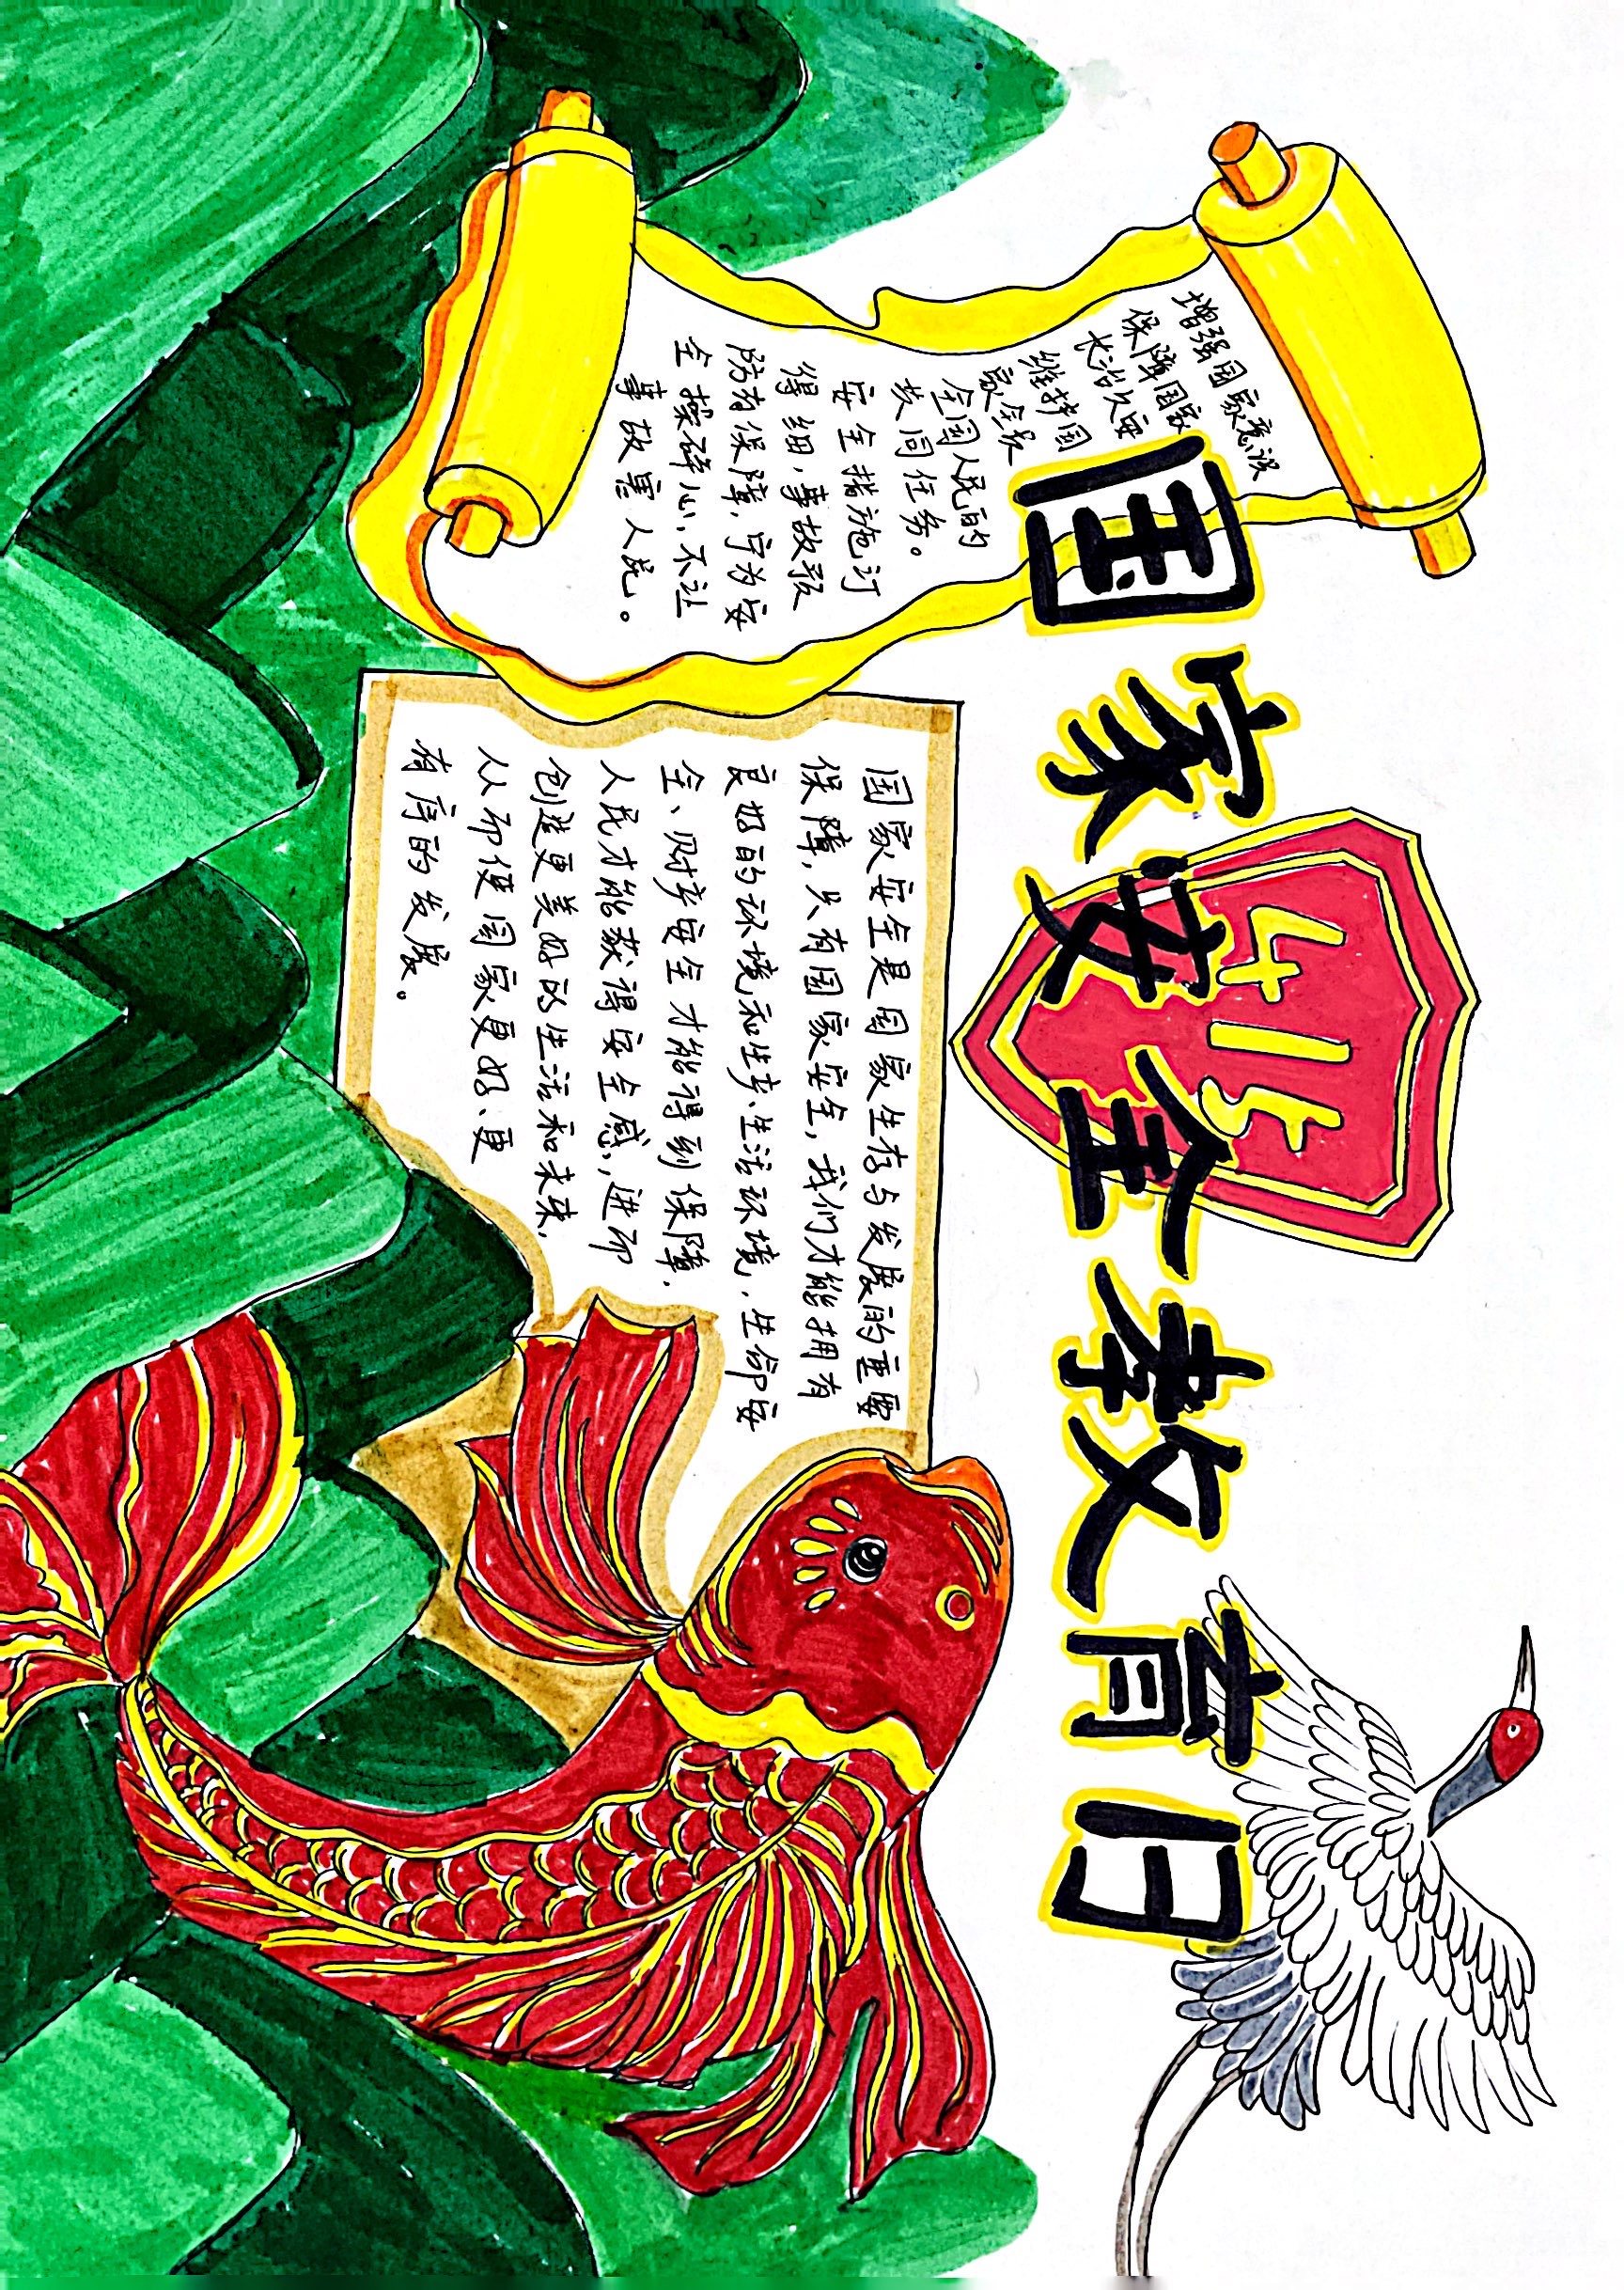 国家安全教育日
415
增强国家意识
保障国家
长治久安
维护国
家安全是
全国人民的
共同任务。
安全措施订
得细,事故预
防有保障,宁为安
全操碎心,不让
事故害人民。
国家安全是国家生存与发展的重要
保障,只有国家安全,我们才能拥有
良好的环境和生产、生活环境,生命安
全、财产安全才能得到保障.
人民才能获得安全感,进而
创造更美好的生活和未来,
从而使国家更好、更
有序的发展。